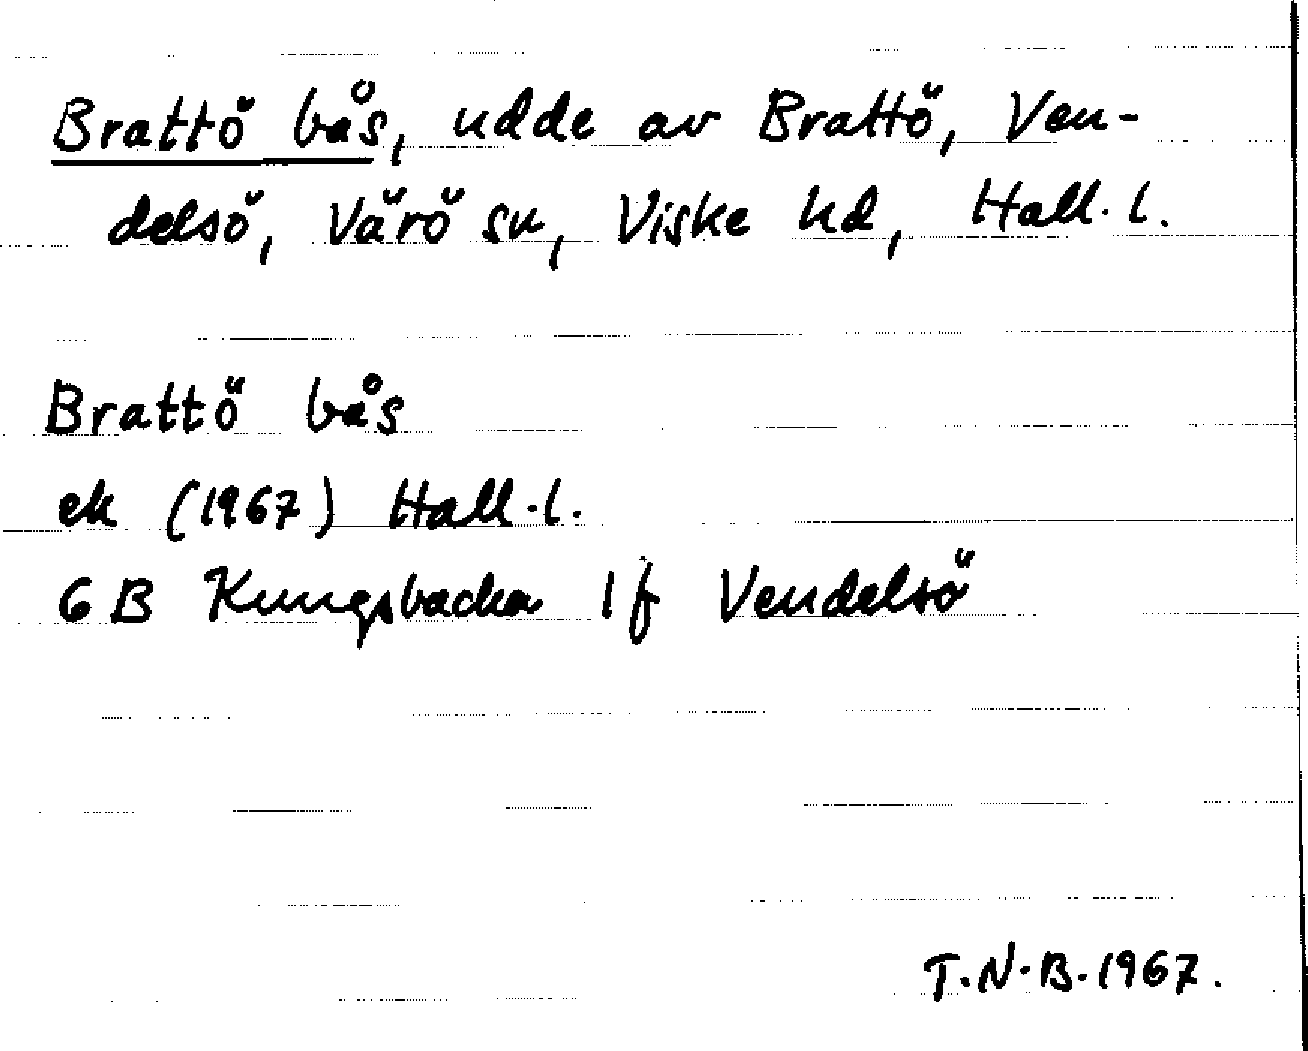 Brattö bås, udde av Brattö, Ven-
delsö, Värö sn, Viske hd, Hall. l.
Brattö bås
ek (1967) Hall. l.
6 B Kungsbacka 1 f Vendelsö
T.N.B. 1967.